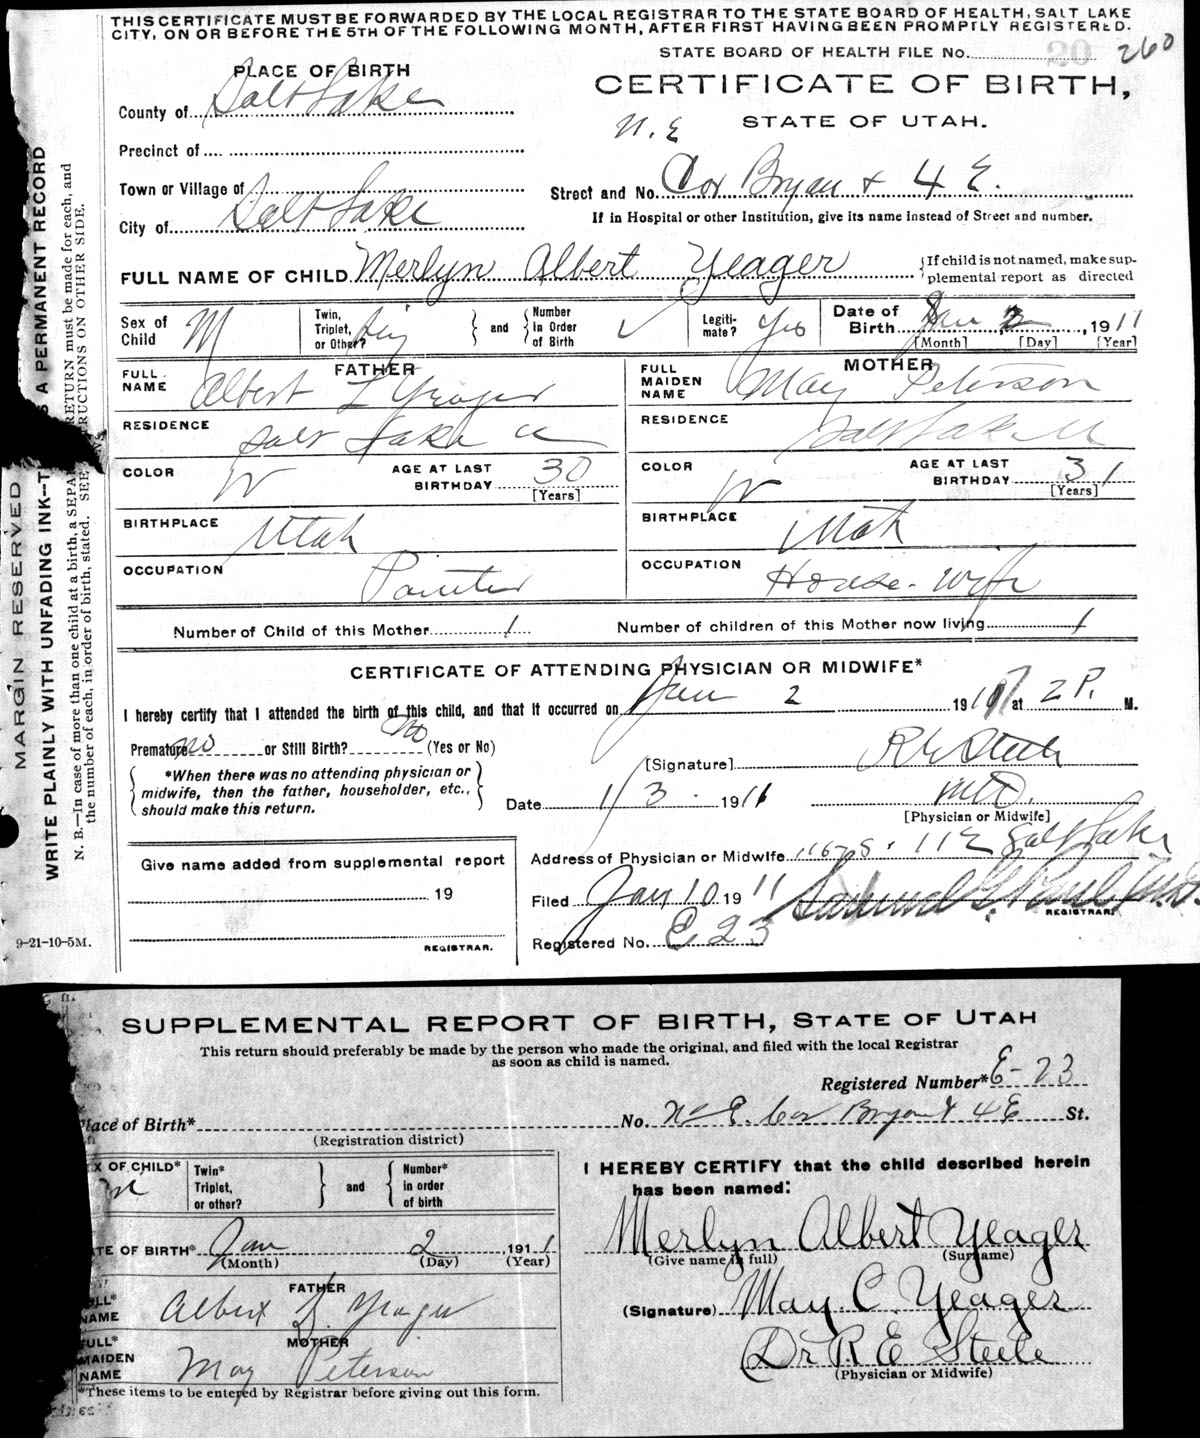 THIS CERTIFICATE MUST BE FORWARDED BY THE LOCAL REGISTRAR TO THE STATE BOARD OF HEALTH, SALT LAKE
CITY, ON OR BEFORE THE 5TH OF THE FOLLOWING MONTH, AFTER FIRST HAVING BEEN PROMPTLY REGISTERED.
STATE BOARD OF HEALTH FILE No. 20 260
PLACE OF BIRTH
CERTIFICATE OF BIRTH,
County of Salt Lake
N. E STATE OF UTAH.
Precinct of
Town or Village of
Street and No. Cor Bryan + 4 E.
City of Salt Lake
If in Hospital or other Institution, give its name instead of Street and number.
FULL NAME OF CHILD Merlyn Albert Yeager
If child is not named, make sup-
plemental report as directed
Sex of Child M
Twin, Triplet, or Other?
and
Number in Order of Birth
Legiti- mate? Yes
Date of Birth Jan 2, 1911
[Month] [Day] [Year]
FATHER
FULL NAME Albert L Yeager
MOTHER
FULL MAIDEN NAME May Peterson
RESIDENCE Salt Lake
RESIDENCE Salt Lake
COLOR W AGE AT LAST BIRTHDAY 30 [Years]
COLOR W AGE AT LAST BIRTHDAY 31 [Years]
BIRTHPLACE Utah
BIRTHPLACE Utah
OCCUPATION Painter
OCCUPATION House-wife
Number of Child of this Mother 1 Number of children of this Mother now living 1
CERTIFICATE OF ATTENDING PHYSICIAN OR MIDWIFE*
I hereby certify that I attended the birth of this child, and that it occurred on Jan 2 191 at 2 P. M.
Premature no or Still Birth? no (Yes or No)
*When there was no attending physician or
midwife, then the father, householder, etc.,
should make this return.
[Signature] R E Steele
Date 1/3 1911 M.D.
[Physician or Midwife]
Give name added from supplemental report
19
REGISTRAR.
Address of Physician or Midwife 1167 S. 11 E Salt Lake
Filed Jan 10 1911 Samuel G. Paul M.D.
REGISTRAR.
Registered No. E 23
9-21-10-5M.
MARGIN RESERVED
WRITE PLAINLY WITH UNFADING INK—T S A PERMANENT RECORD
N. B.—In case of more than one child at a birth, a SEPA RETURN must be made for each, and
the number of each, in order of birth, stated. SEE RUCTIONS ON OTHER SIDE.
SUPPLEMENTAL REPORT OF BIRTH, STATE OF UTAH
This return should preferably be made by the person who made the original, and filed with the local Registrar
as soon as child is named.
Registered Number* E-23
lace of Birth* No. N E. Cor Bryan & 4 E St.
(Registration district)
X OF CHILD* m
Twin* Triplet, or other?
and
Number* in order of birth
I HEREBY CERTIFY that the child described herein
has been named:
Merlyn Albert Yeager
(Give name in full) (Surname)
TE OF BIRTH* Jan 2, 1911
(Month) (Day) (Year)
FATHER
ULL* NAME Albert L Yeager
(Signature) May C. Yeager
MOTHER
FULL* MAIDEN NAME May Peterson
Dr R. E Steele
(Physician or Midwife)
*These items to be entered by Registrar before giving out this form.